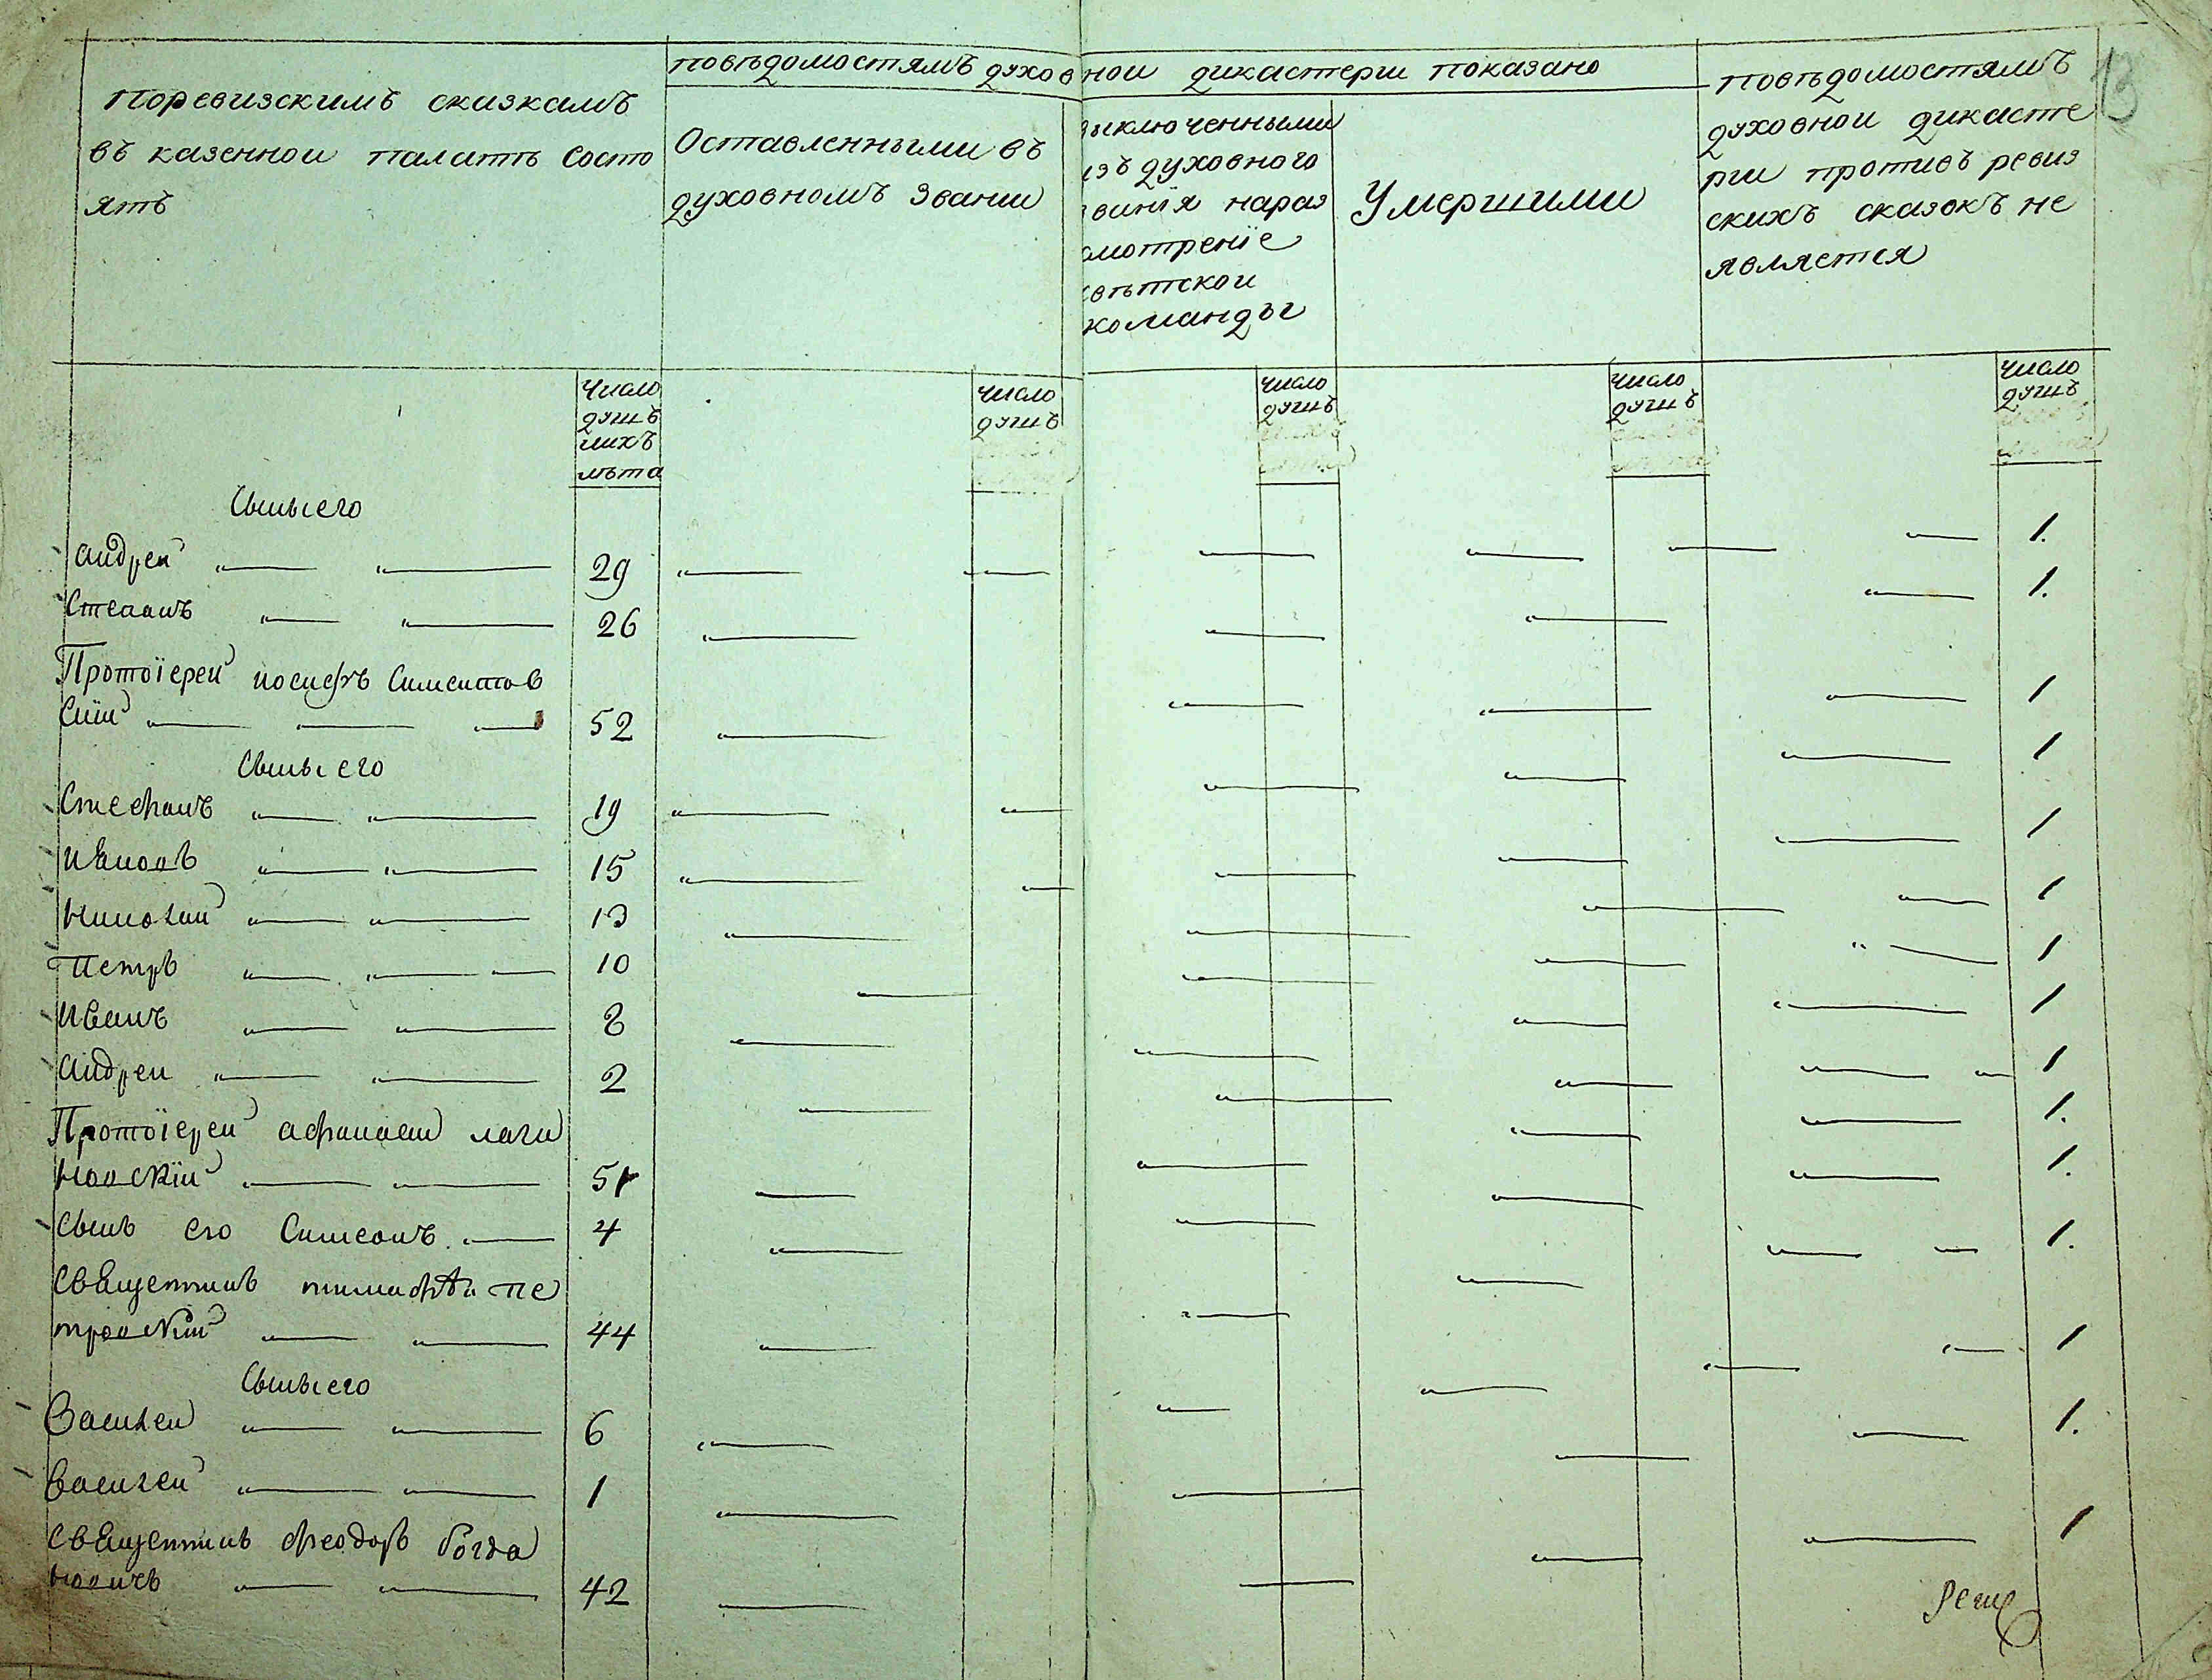 13
Поревизскимъ сказкамъ
въ казенной палатѣ состо
ятъ
повѣдомостямъ духовной дикастерии показано
Оставленными въ
духовномъ звании
выключенными
изъ духовного
звания нараз
смотренїе
свѣтской
команды
Умершими
повѣдомостямъ
духовной дикасте
рии противъ ревиз
скихъ сказокъ не
является
число
душъ
ихъ
лѣта
число
душъ
число
душъ
число
душъ
число
душъ
Сыны его
андрей 29 1.
Степанъ 26 1.
Протоїерей иосифъ Симентов
скїй 52 1
Сыны его
Стефанъ 19 1
иꙗковъ 15 1
николай 13 1
Петръ 10 1
иванъ 8 1
андреи 2 1
Протоїерей афанасии
новскїй 51 1.
сынъ его Симеонъ 4 1.
свꙗщенникъ тимофѣй пе
тровскїй 44 1
Сыны его
Василеи 6 1.
василей 1
свꙗщенникъ феодоръ богда
новичъ 42 1